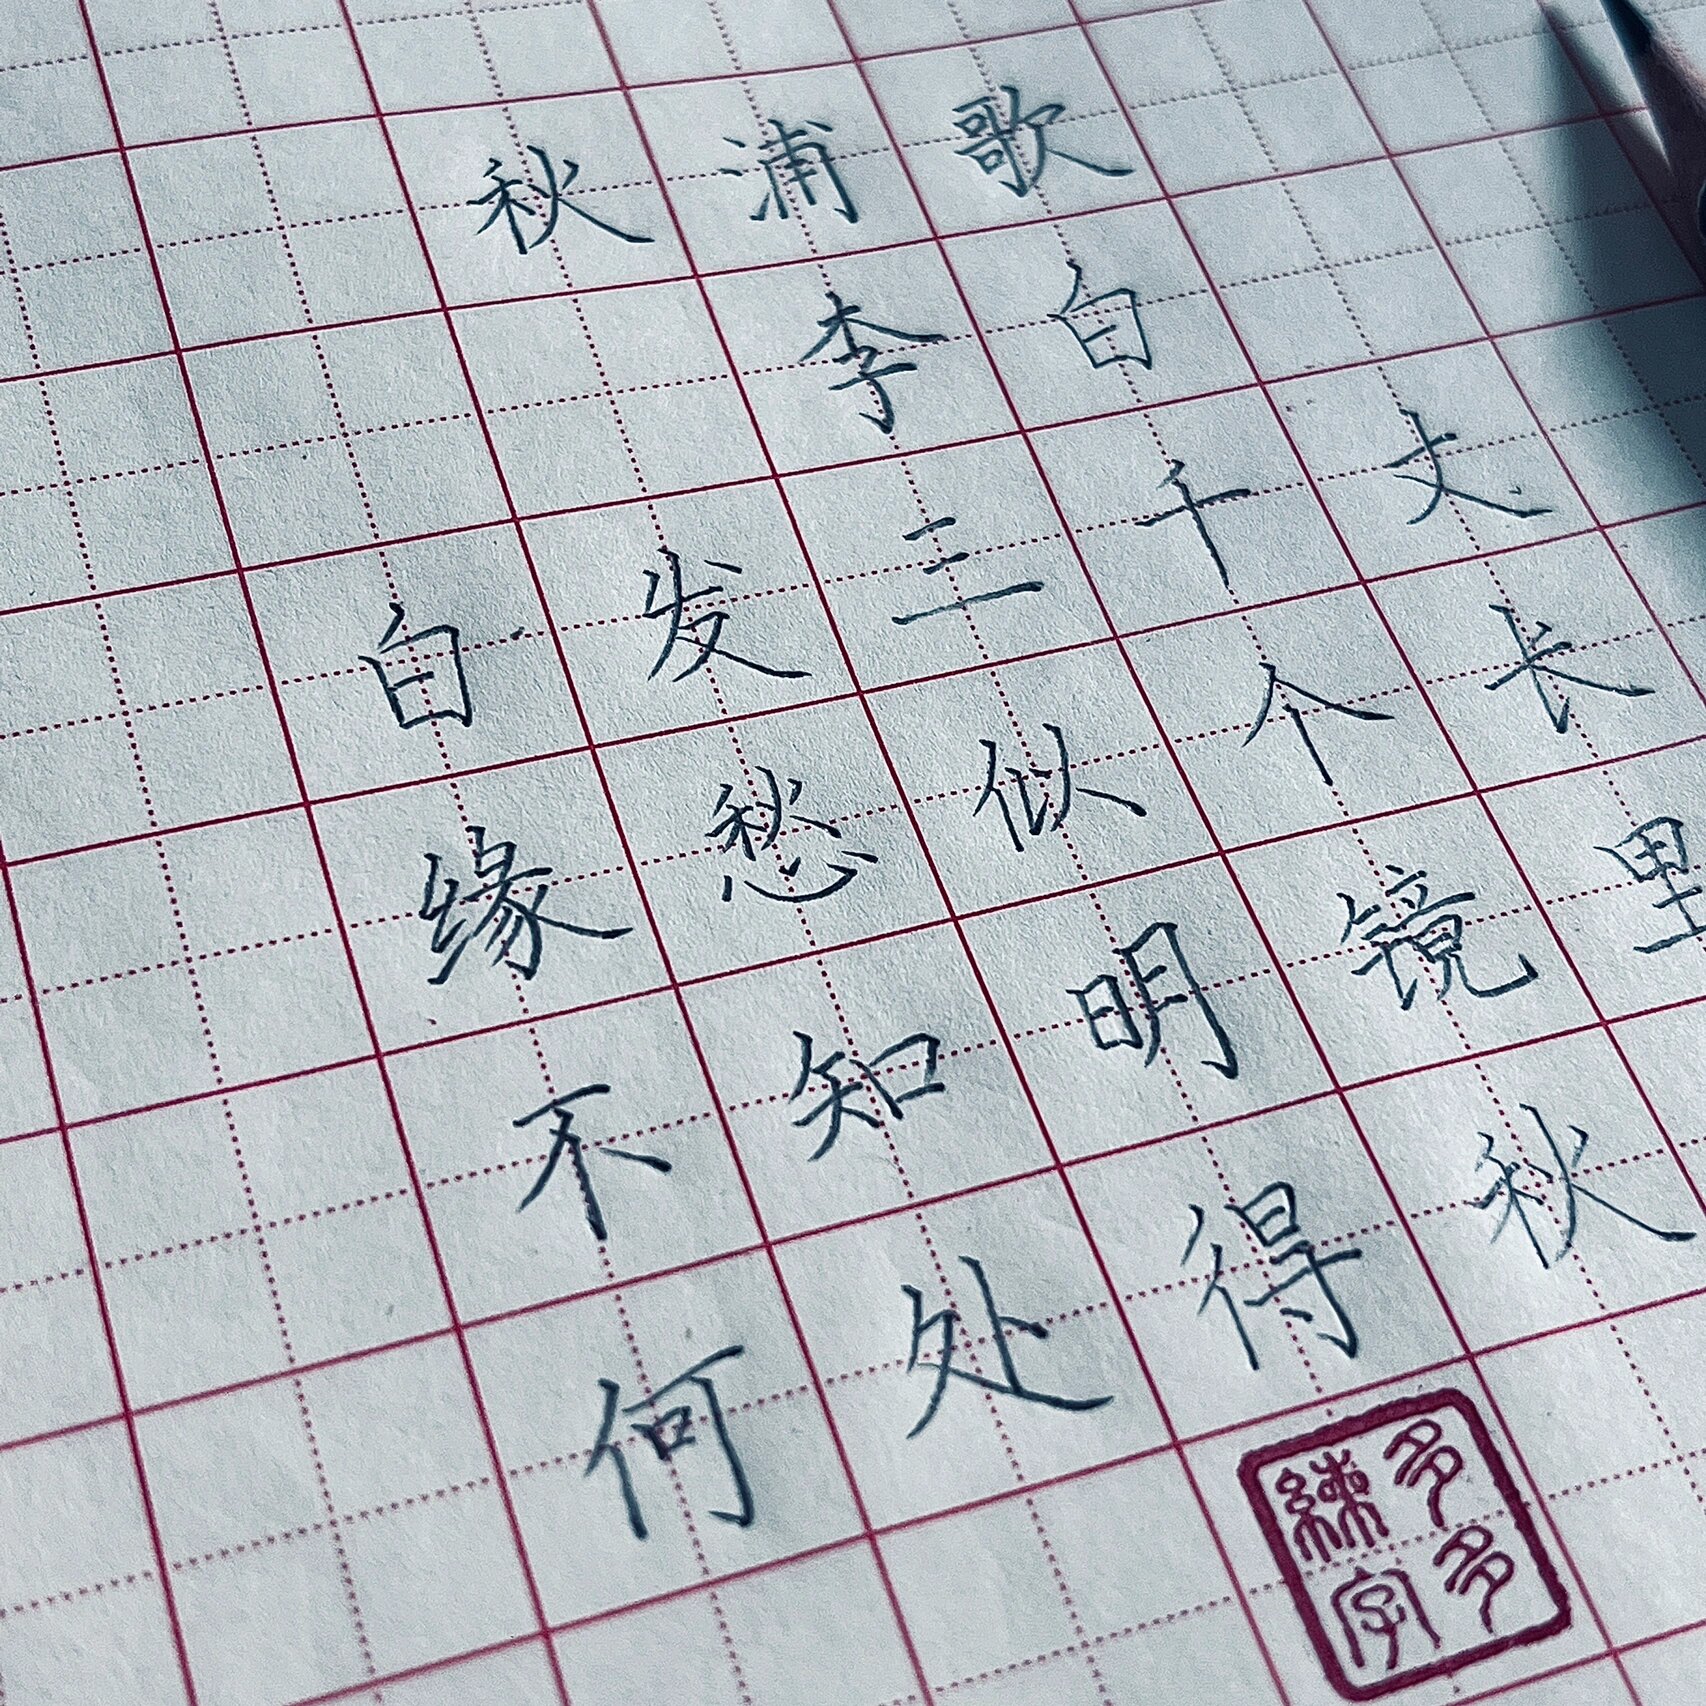 秋浦歌
李白
白发三千丈
缘愁似个长
不知明镜里
何处得秋
多多練字